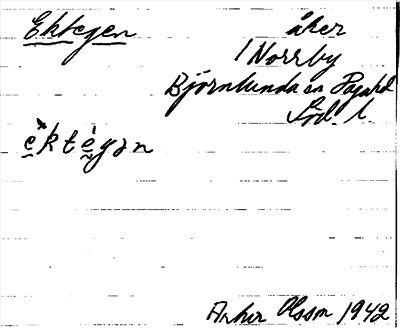 Ektegen åker
1 Norrby
Björnlunda sn Daga hd
Söd. l.
èktégən
Arthur Olsson 1942